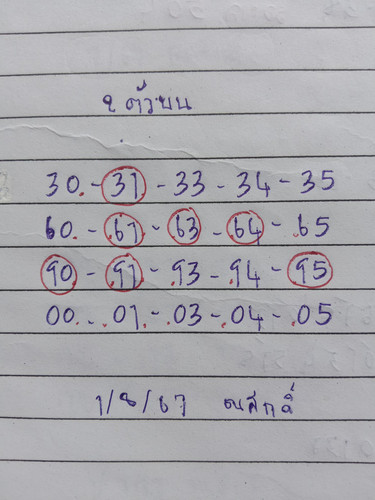 2 ตัวบน
30 - 31 - 33 - 34 - 35
60 - 61 - 63 - 64 - 65
90 - 91 - 93 - 94 - 95
00 - 01 - 03 - 04 - 05
1/8/67